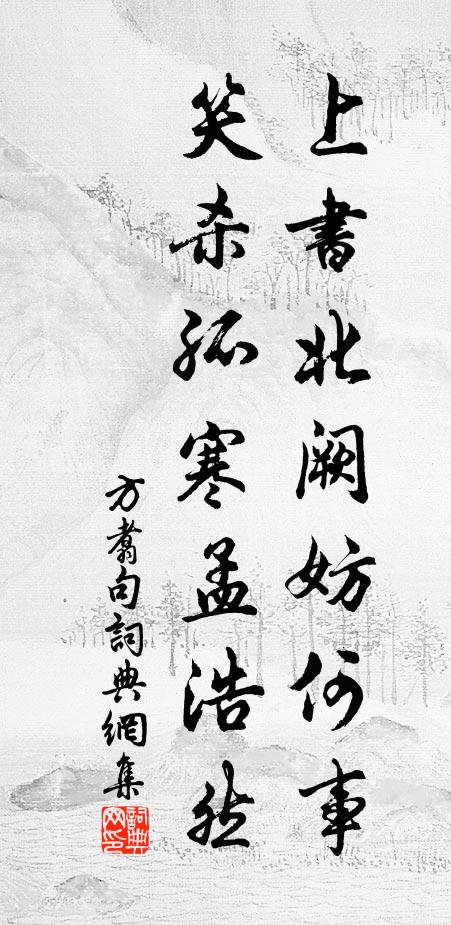 上書北闕妨何事
笑杀孤寒孟浩然
方翥句詞典網集
詞典網印